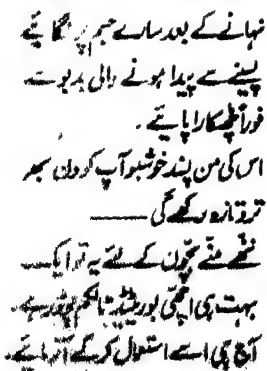 نہانے کے بعد سارے جسم پر لگائیے
پسینے سے پیدا ہونے والی بدبو سے
فوراً چھٹکارا پائیے۔
اس کی من پسند خوشبو آپ کو دن بھر
تروتازہ رکھے گی ——
ننھے منے بچوں کے لئے یہ تو ایک
بہت ہی اچھی بوریٹیڈ ٹالکم پوڈر ہے۔
آج ہی اسے استعمال کر کے آزمائیے۔